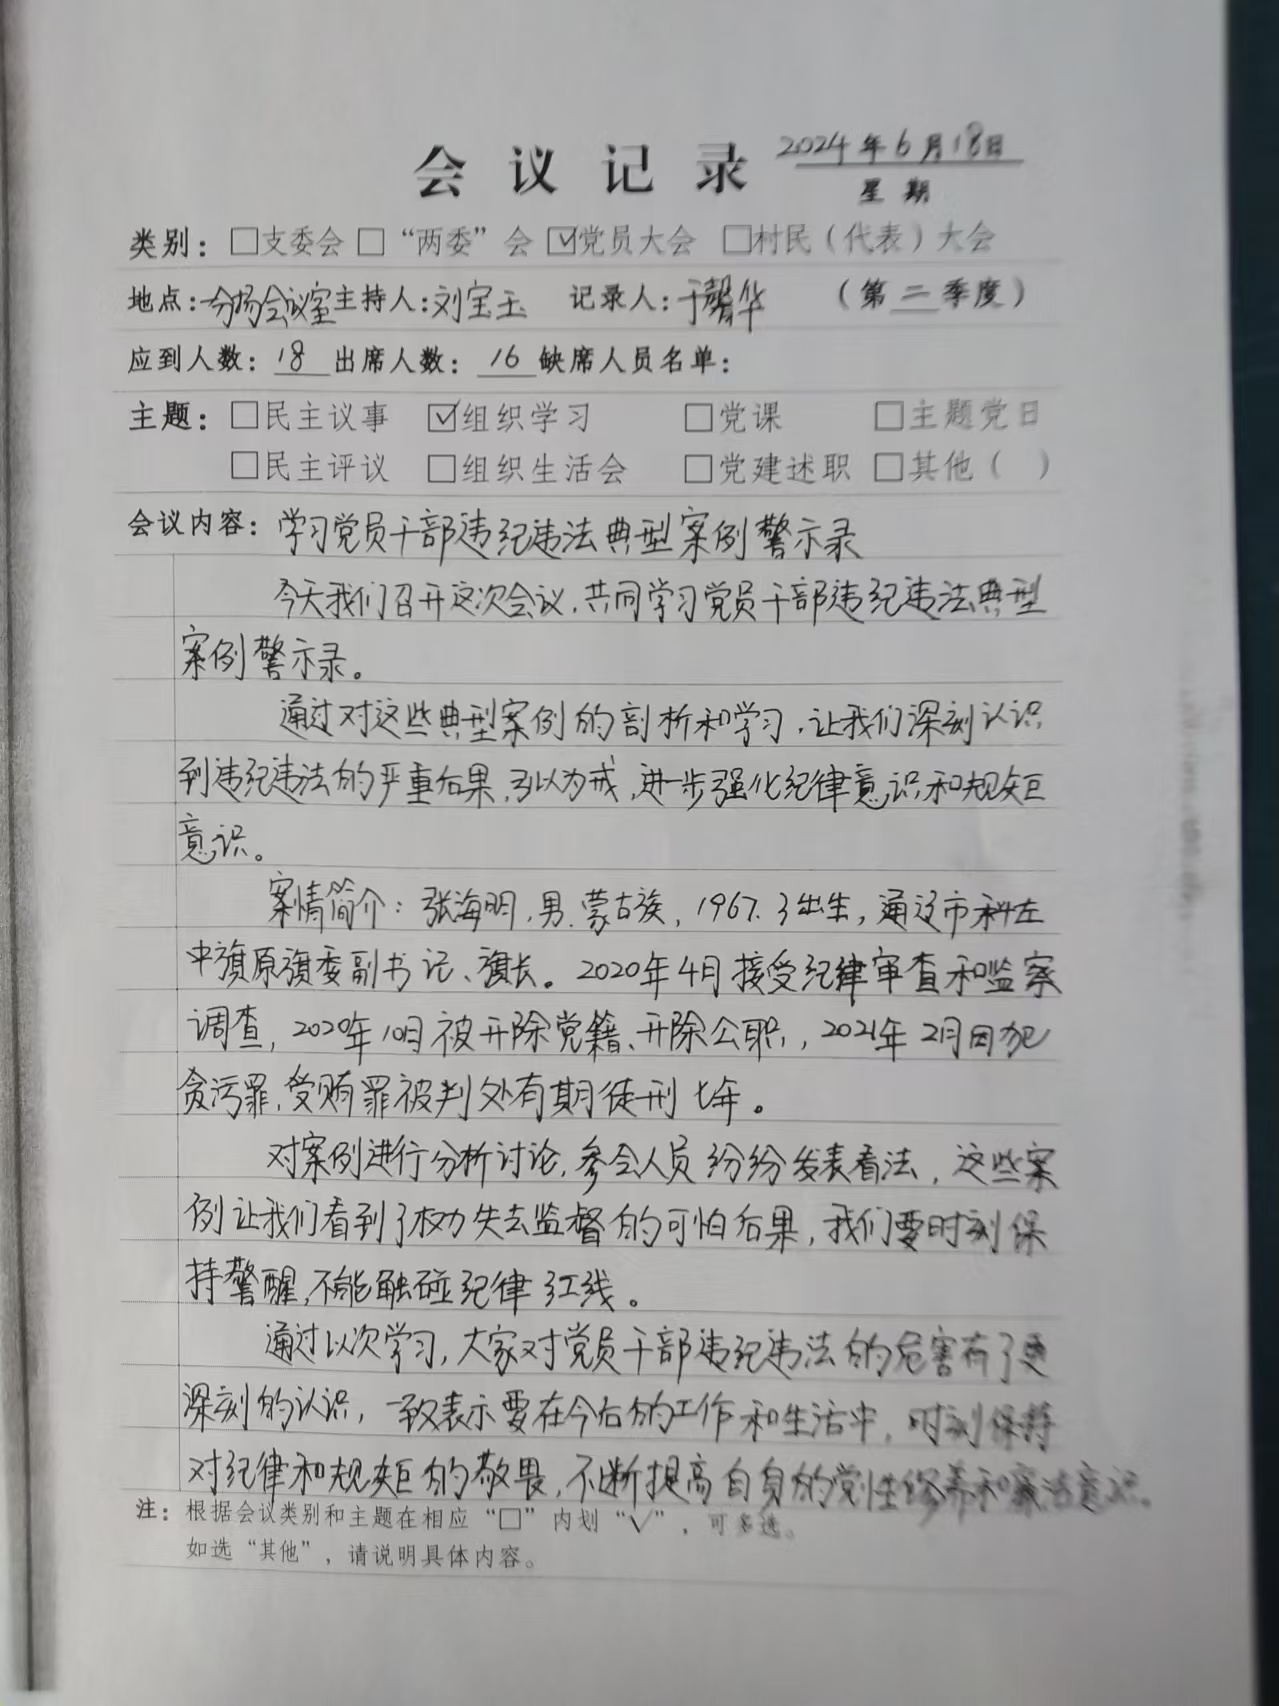 会议记录 2024年6月18日
星期
类别：□支委会 □“两委”会 ☑党员大会 □村民（代表）大会
地点：分场会议室主持人：刘宝玉 记录人：于馨华 （第二季度）
应到人数：18 出席人数：16 缺席人员名单：
主题：□民主议事 ☑组织学习 □党课 □主题党日
□民主评议 □组织生活会 □党建述职 □其他（ ）
会议内容：学习党员干部违纪违法典型案例警示录
今天我们召开这次会议，共同学习党员干部违纪违法典型
案例警示录。
通过对这些典型案例的剖析和学习，让我们深刻认识
到违纪违法的严重后果，引以为戒，进一步强化纪律意识和规矩
意识。
案情简介：张海明，男，蒙古族，1967.3出生，通辽市科左
中旗原旗委副书记、旗长。2020年4月接受纪律审查和监察
调查，2020年10月被开除党籍、开除公职，2021年2月因犯
贪污罪，受贿罪被判处有期徒刑七年。
对案例进行分析讨论，参会人员纷纷发表看法，这些案
例让我们看到了权力失去监督的可怕后果，我们要时刻保
持警醒，不能触碰纪律红线。
通过以次学习，大家对党员干部违纪违法的危害有了更
深刻的认识，一致表示要在今后的工作和生活中，时刻保持
对纪律和规矩的敬畏，不断提高自身的党性修养和廉洁意识。
注：根据会议类别和主题在相应“□”内划“√”，可多选。
如选“其他”，请说明具体内容。